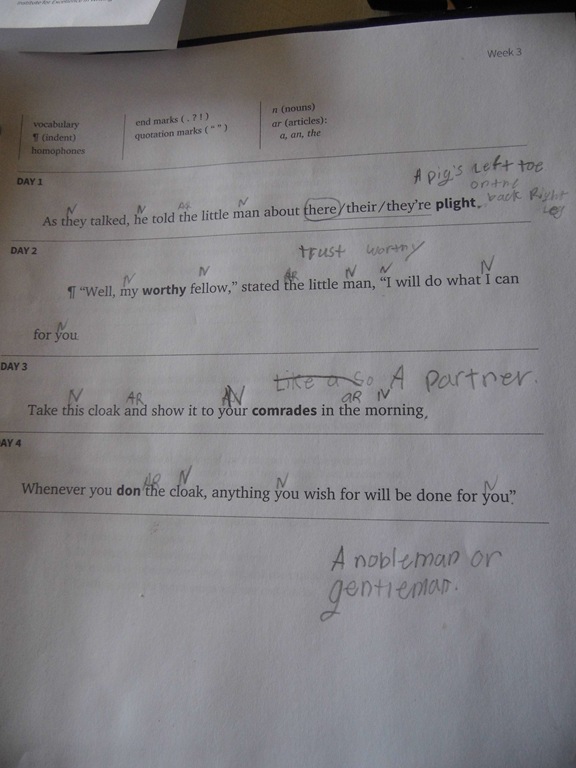 Institute for Excellence in Writing
Week 3
vocabulary
¶ (indent)
homophones
end marks ( . ? ! )
quotation marks ( “ ” )
n (nouns)
ar (articles):
a, an, the
DAY 1
A pig's left toe
on the
back Right
Leg
N N AR N
As they talked, he told the little man about there/their/they're plight.
DAY 2
trust worthy
N N AR N N N
¶ “Well, my worthy fellow,” stated the little man, “I will do what I can
N
for you.
DAY 3
Like a So A partner.
N AR N aR N
Take this cloak and show it to your comrades in the morning.
AY 4
AR N N N
Whenever you don the cloak, anything you wish for will be done for you.”
A nobleman or
gentleman.